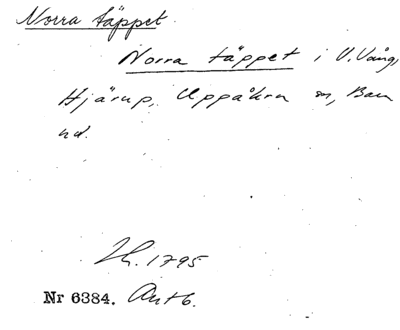 Norra täppet
Norra täppet i V. Vång,
Hjärup, Uppåkra sn, Bara
hd.
Zh. 1795
Nr 6384. Antb.